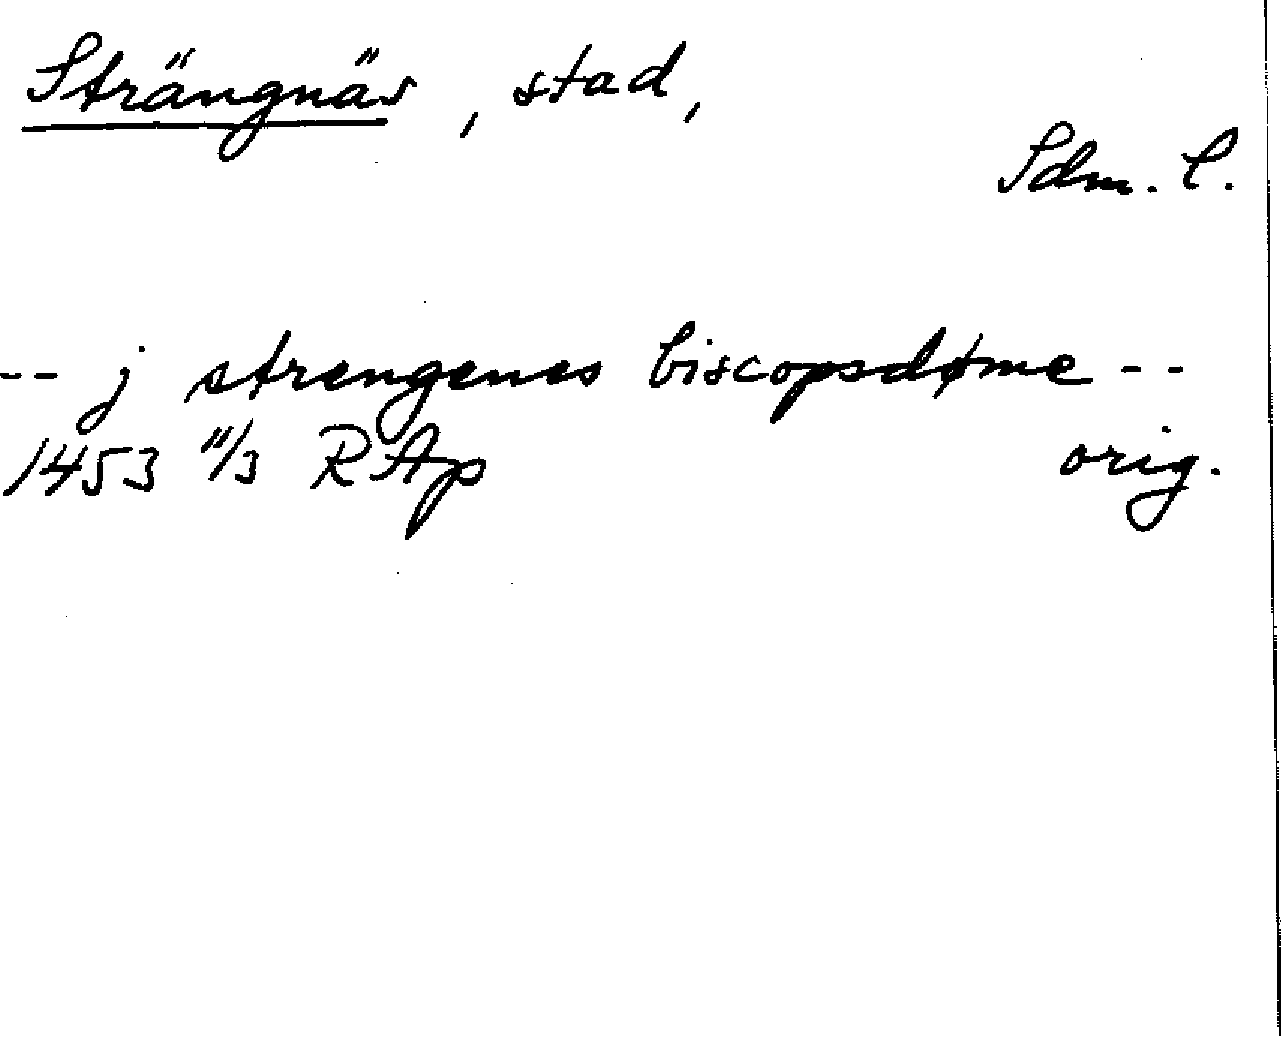 Strängnäs, stad,
Sdm. l.
-- j strengenes biscopsdøme --
1453 11/3 RAp orig.